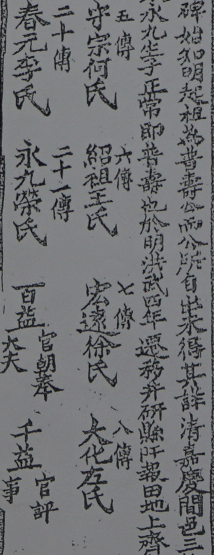 碑始知明起祖為普壽公而公所自出未得其詳清嘉慶間邑三
永九生子正常即普壽也於明洪武四年遷移井研縣阡報田地上齊
五傳 六傳 七傳 八傳
守宗何氏 紹祖王氏 宏遠徐氏 大化左氏
二十傳 二十一傳
春元李氏 永九榮氏 百益官朝奉大夫 千益官評事